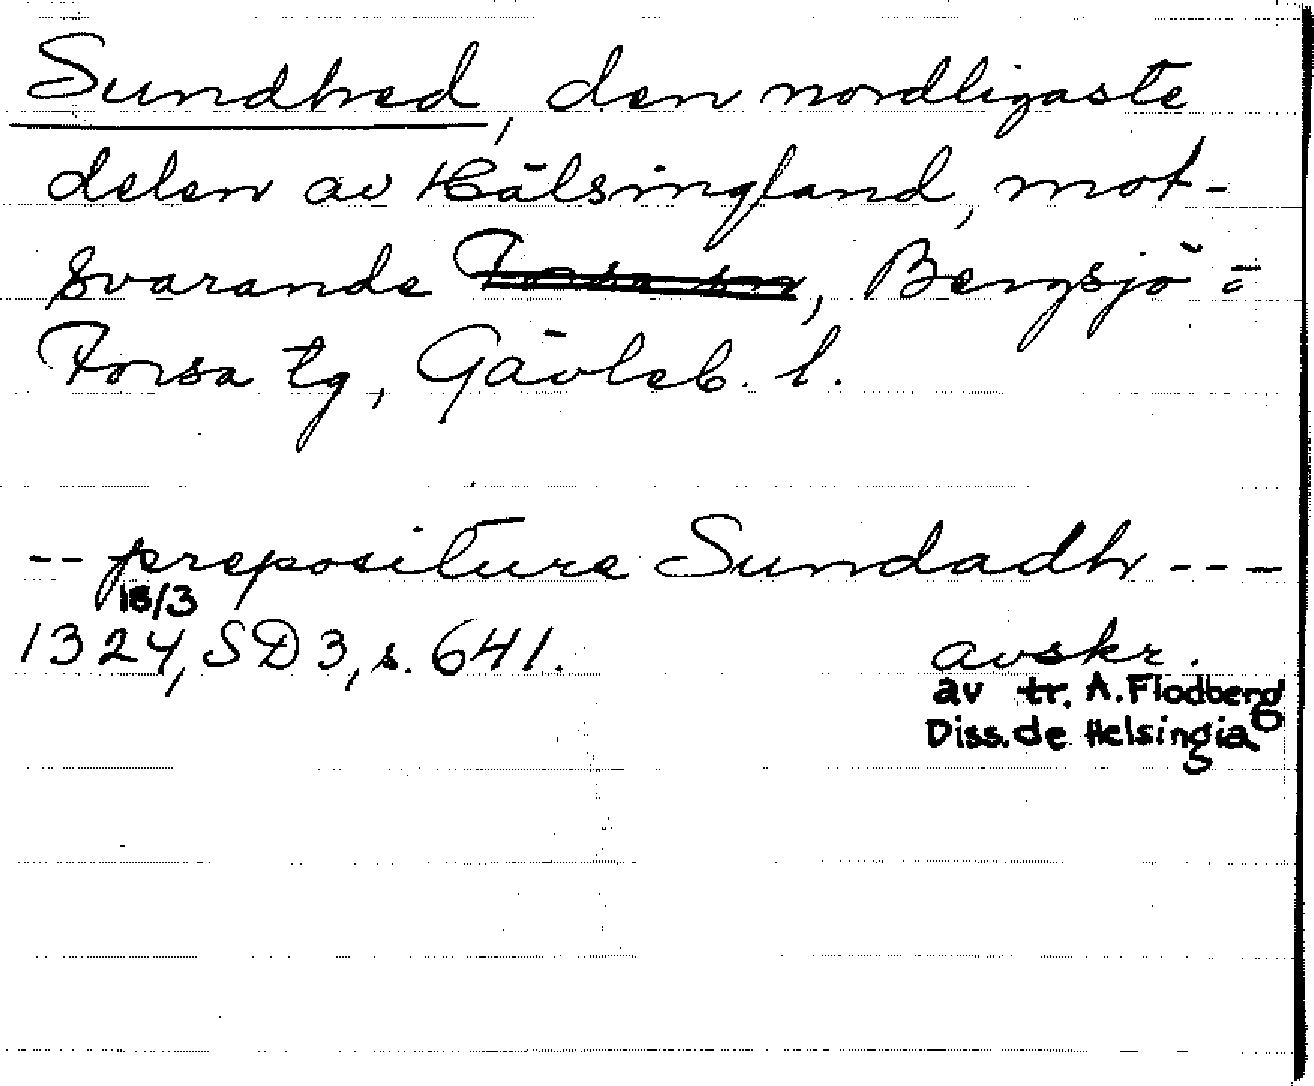 Sundhed, den nordligaste
delen av Hälsingland, mot-
svarande Forsa sn, Bergsjö =
Forsa tg, Gävleb. l.
-- prepositure Sundadh ---
18/3
1324, SD 3, s. 641. avskr.
av tr. A. Flodberg
Diss. de Helsingia 6